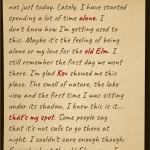 not just today. Lately, I have started
spending a lot of time alone. I
don't know how I'm getting used to
this. Maybe it's the feeling of being
alone or my love for the old Elm. I
still remember the first day we went
there. I'm glad Kev showed me this
place. The smell of nature, the lake
view and the first time I was sitting
under its shadow, I knew this is it...
that's my spot. Some people say
that it's not safe to go there at
night. I couldn't care enough though.